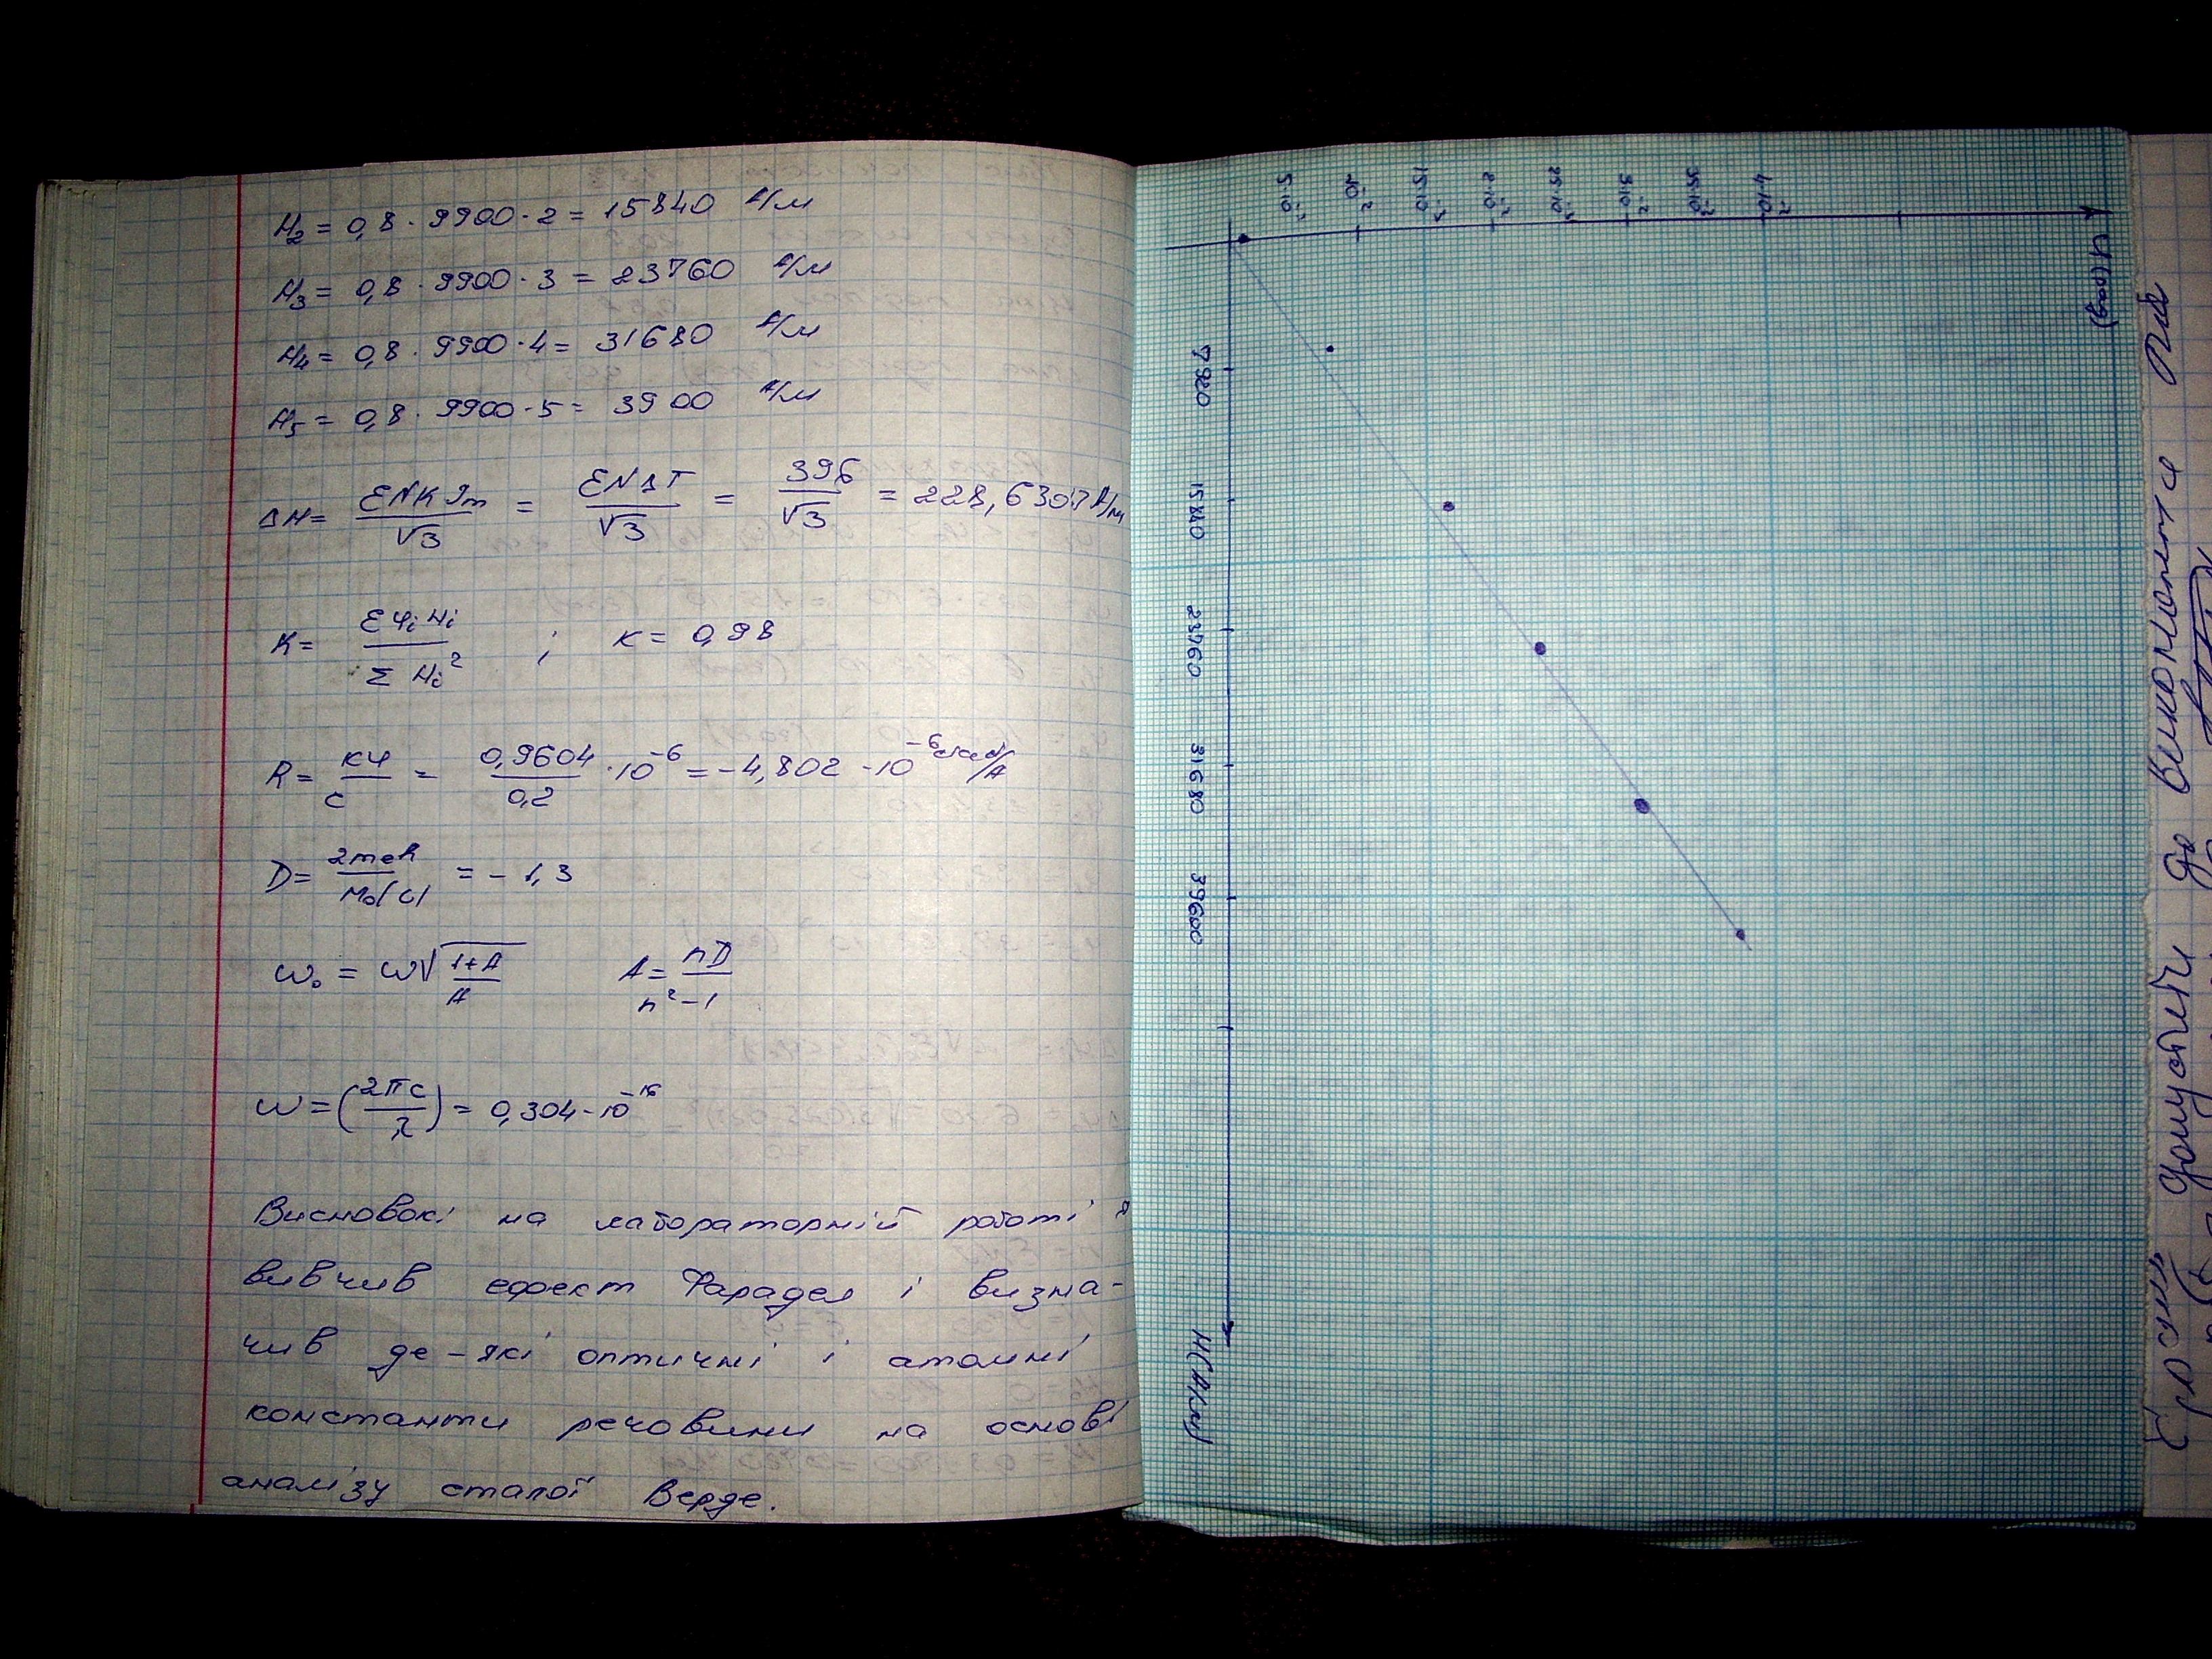 H₂ = 0,8 · 9900 · 2 = 15840 А/м
H₃ = 0,8 · 9900 · 3 = 23760 А/м
H₄ = 0,8 · 9900 · 4 = 31680 А/м
H₅ = 0,8 · 9900 · 5 = 3900 А/м
ΔH = εNKIm/√3 = εNΔT/√3 = 396/√3 = 228,6307 А/м
K = ΣφᵢHᵢ/ΣHᵢ² ; K = 0,98
R = Kφ/c = 0,9604/0,2 · 10⁻⁶ = -4,802 · 10⁻⁶ рад/А
D = 2mcR/M₀(c) = - 1,3
ω₀ = ω√(1+A)/A A = nD/n²-1
ω = (2πc/λ) = 0,304 - 10⁻¹⁶
Висновок: на лабораторній роботі я
вивчив ефект Фарадея і визна-
чив де-які оптичні і атомні
константи речовини на основі
аналізу сталої Верде.
5·10⁻² 10⁻² 15·10⁻² 2·10⁻² 25·10⁻² 3·10⁻² 35·10⁻² 4·10⁻²
φ(град)
7920
15840
23760
31680
39600
H(А/м)
до виконання
допустити до